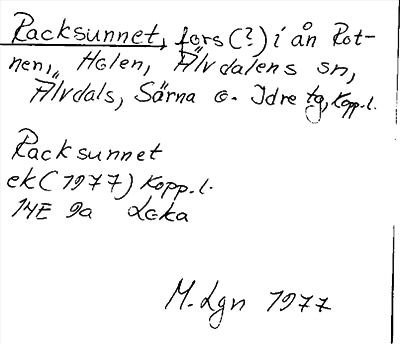 Racksunnet, fors (?) i ån Rot-
nen, Holen, Älvdalens sn,
Älvdals, Särna o. Idre tg, Kopp.l.
Racksunnet
ek (1977) Kopp.l.
14E 9a Loka
M. Lgn 1977